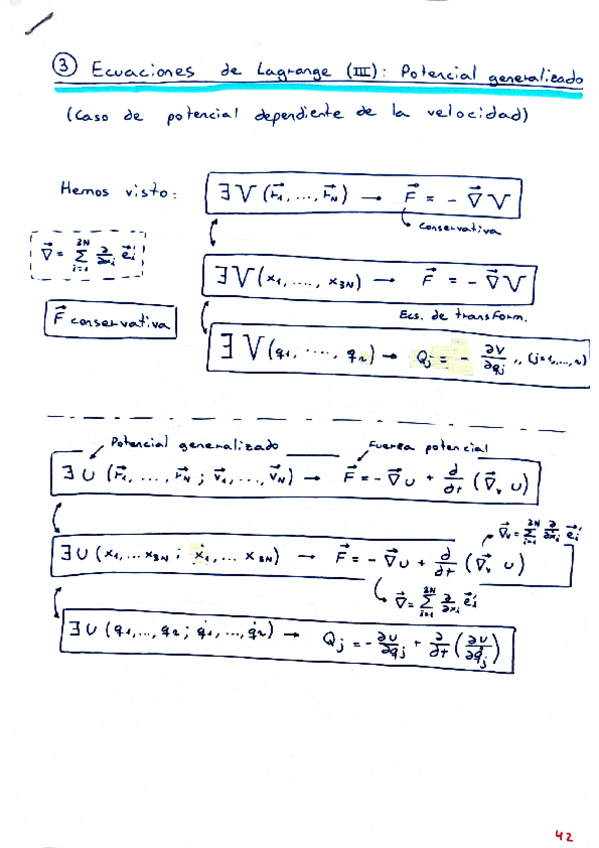 ③ Ecuaciones de Lagrange (III): Potencial generalizado
(Caso de potencial dependiente de la velocidad)
Hemos visto: ∃ V (r⃗₁, ..., r⃗_N) → F⃗ = - ∇⃗ V
Conservativa
∇⃗ = Σ_{i=1}^{3N} ∂/∂x_i e⃗_i
∃ V (x₁, ..., x_{3N}) → F⃗ = - ∇⃗ V
F⃗ conservativa
Ecs. de transform.
∃ V (q₁, ..., q_r) → Q_j = - ∂V/∂q_j, (j=1,...,r)
Potencial generalizado Fuerza potencial
∃ U (r⃗₁, ..., r⃗_N ; v⃗₁, ..., v⃗_N) → F⃗ = - ∇⃗ U + d/dt (∇⃗_v U)
∇⃗_v = Σ_{i=1}^{3N} ∂/∂ẋ_i e⃗_i
∃ U (x₁, ... x_{3N} ; ẋ₁, ... ẋ_{3N}) → F⃗ = - ∇⃗ U + d/dt (∇⃗_v U)
∇⃗ = Σ_{i=1}^{3N} ∂/∂x_i e⃗_i
∃ U (q₁, ..., q_r ; q̇₁, ..., q̇_r) → Q_j = - ∂U/∂q_j + d/dt (∂U/∂q̇_j)
42